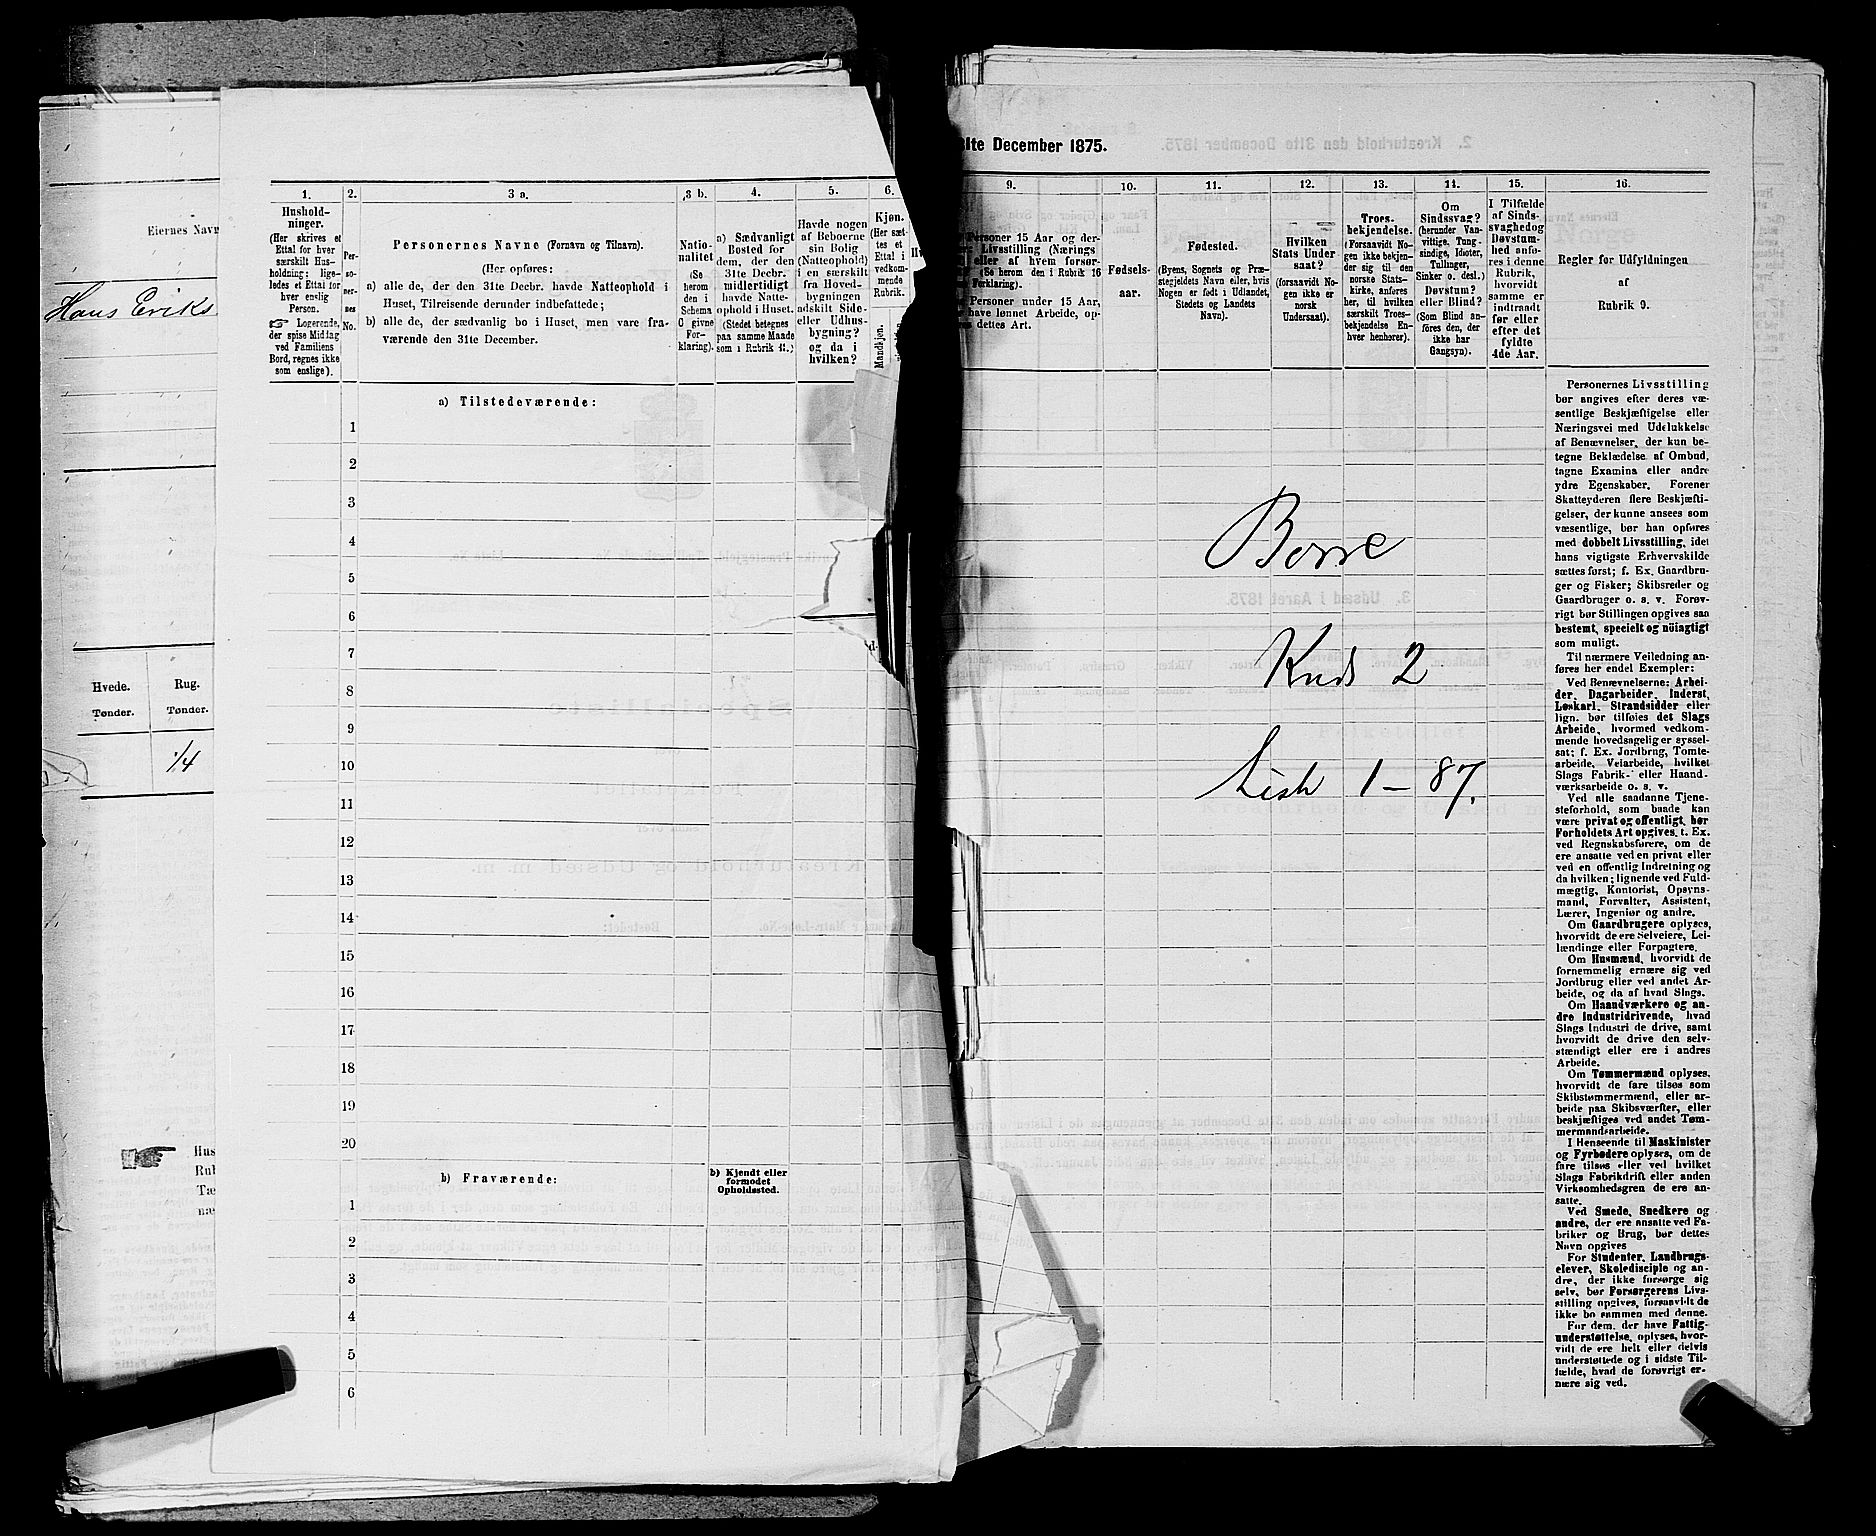 Eiernes Navn
Hans Eriks
Hvede.
Tønder.
Rug.
Tønder.
1/4
1.
Hushold-
ninger.
(Her skrives et
Ettal for hver
særskilt Hus-
holdning; lige-
ledes et Ettal for
hver enslig
Person.
☞ Logerende,
der spise Middag
ved Familiens
Bord, regnes ikke
som enslige).
2.
Per-
so-
ner-
nes
No.
3 a.
Personernes Navne (Fornavn og Tilnavn).
(Her opføres:
a) alle de, der den 31te Decbr. havde Natteophold i
Huset, Tilreisende derunder indbefattede;
b) alle de, der sædvanlig bo i Huset, men vare fra-
værende den 31te December.
3 b.
Natio-
nalitet
(Se
herom
den i
Schema
O givne
For-
klaring).
4.
a) Sædvanligt
Bosted for
dem, der den
31te Decbr.
midlertidigt
havde Natte-
ophold i Huset.
(Stedet betegnes
paa samme Maade
som i Rubrik 11.)
5.
Havde nogen
af Beboerne
sin Bolig
(Natteophold)
i en særskilt
fra Hoved-
bygningen
adskilt Side-
eller Udhus-
bygning?
og da i
hvilken?
6.
Kjøn.
(Her sæt-
tes et
Ettal i
vedkom-
mende
Rubrik.
Mandkjøn.
a) Tilstedeværende:
1
2
3
4
5
6
7
8
9
10
11
12
13
14
15
16
17
18
19
20
b) Fraværende:
b) Kjendt eller
formodet
Opholdssted.
1
2
3
4
5
6
31te December 1875.
9.
Personer 15 Aar og der-
Livsstilling (Nærings
eller af hvem forsør-
(Se herom den i Rubrik 16
Forklaring).
Personer under 15 Aar,
have lønnet Arbeide, op-
dettes Art.
10.
Fødsels-
aar.
11.
Fødested.
(Byens, Sognets og Præ-
stegjeldets Navn eller, hvis
Nogen er født i Udlandet,
Stedets og Landets
Navn).
12.
Hvilken
Stats Under
saat?
(forsaavidt No-
gen ikke er
norsk
Undersaat).
13.
Troes-
bekjendelse.
(Forsaavidt No-
gen ikke bekjen-
der sig til den
norske Stats-
kirke, anføres
her, til hvilken
særskilt Troes-
bekjendelse En-
hver henhører).
14.
Om
Sindssvag?
(herunder Van-
vittige, Tung-
sindige, Idioter,
Tullinger,
Sinker o. desl.)
Døvstum?
eller Blind?
(Som Blind an-
føres den, der
ikke har
Gangsyn).
15.
I Tilfælde
af Sinds-
svaghed og
Døvstum-
hed anfø-
res i denne
Rubrik,
hvorvidt
samme er
indtraadt
før eller
efter det
fyldte
4de Aar.
16.
Regler for Udfyldningen
af
Rubrik 9.
Borre
Kreds 2
Liste 1 – 87.
Personernes Livsstilling
bør angives efter deres væ-
sentlige Beskjæftigelse eller
Næringsvei med Udelukkelse
af Benævnelser, der kun be-
tegne Beklædelse af Ombud,
tagne Examina eller andre
ydre Egenskaber. Forener
Skatteyderen flere Beskjæfti-
gelser, der kunne ansees som
væsentlige, bør han opføres
med dobbelt Livsstilling, idet
hans vigtigste Erhvervskilde
sættes først; f. Ex. Gaardbru-
ger og Fisker; Skibsreder og
Gaardbruger o. s. v. Forøv-
rigt bør Stillingen opgives saa
bestemt, specielt og nöiagtigt
som muligt.
Til nærmere Veiledning an-
føres her endel Exempler:
Ved Benævnelserne: Arbei-
der, Dagarbeider, Inderst,
Løskarl, Strandsidder eller
lign. bør tilføies det Slags
Arbeide, hvormed vedkom-
mende hovedsagelig er syssel-
sat; f. Ex. Jordbrug, Tomte-
arbeide, Veiarbeide, hvilket
Slags Fabrik- eller Haand-
værksarbeide o. s. v.
Ved alle saadanne Tjene-
steforhold, som baade kan
være privat og offentligt, bør
Forholdets Art opgives, t. Ex.
ved Regnskabsførere, om de
ere ansatte ved en privat eller
ved en offentlig Indretning og
da hvilken; lignende ved Fuld-
mægtig, Kontorist, Opsyns-
mand, Forvalter, Assistent,
Lærer, Ingeniør og andre.
Om Gaardbrugere oplyses,
hvorvidt de ere Selveiere, Lei-
lændinge eller Forpagtere.
Om Husmænd, hvorvidt de
fornemmelig ernære sig ved
Jordbrug eller ved andet Ar-
beide, og da af hvad Slags.
Om Haandværkere og an-
dre Industridrivende, hvad
Slags Industri de drive, samt
hvorvidt de drive den selv-
stændigt eller ere i andres
Arbeide.
Om Tømmermænd oplyses,
hvorvidt de fare tilsøs som
Skibstømmermænd, eller ar-
beide paa Skibsværfter, eller
beskjæftiges ved andet Tøm-
mermandsarbeide.
I Henseende til Maskinister
og Fyrbødere oplyses, om de
fare tilsøs eller ved hvilket
Slags Fabrikdrift eller anden
Virksomhedsgren de ere an-
satte.
Ved Smede, Snedkere og
andre, der ere ansatte ved Fa-
briker og Brug, bør dettes
Navn opgives
For Studenter, Landbrugs-
elever, Skoledisciple og an-
dre, der ikke forsørge sig
selv, bør Forsørgerens Livs-
stilling opgives, forsaavidt de
ikke bo sammen med denne.
For dem, der have Fattig-
understøttelse, oplyses, hvor-
vidt de ere helt eller delvis
understøttede og i sidste Til-
fælde, hvad de forøvrigt er-
nære sig ved.